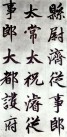 縣尉濟從事
太常太祝濬從
事郎大都護府